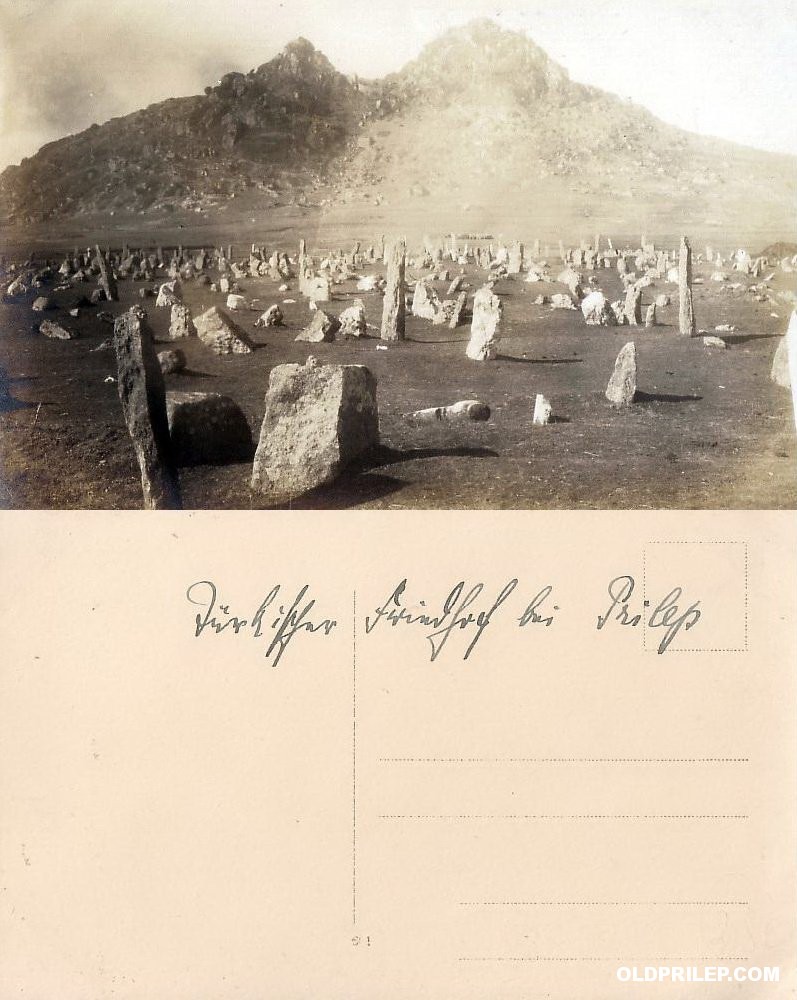 Türkischer Friedhof bei Prilep
OLDPRILEP.COM